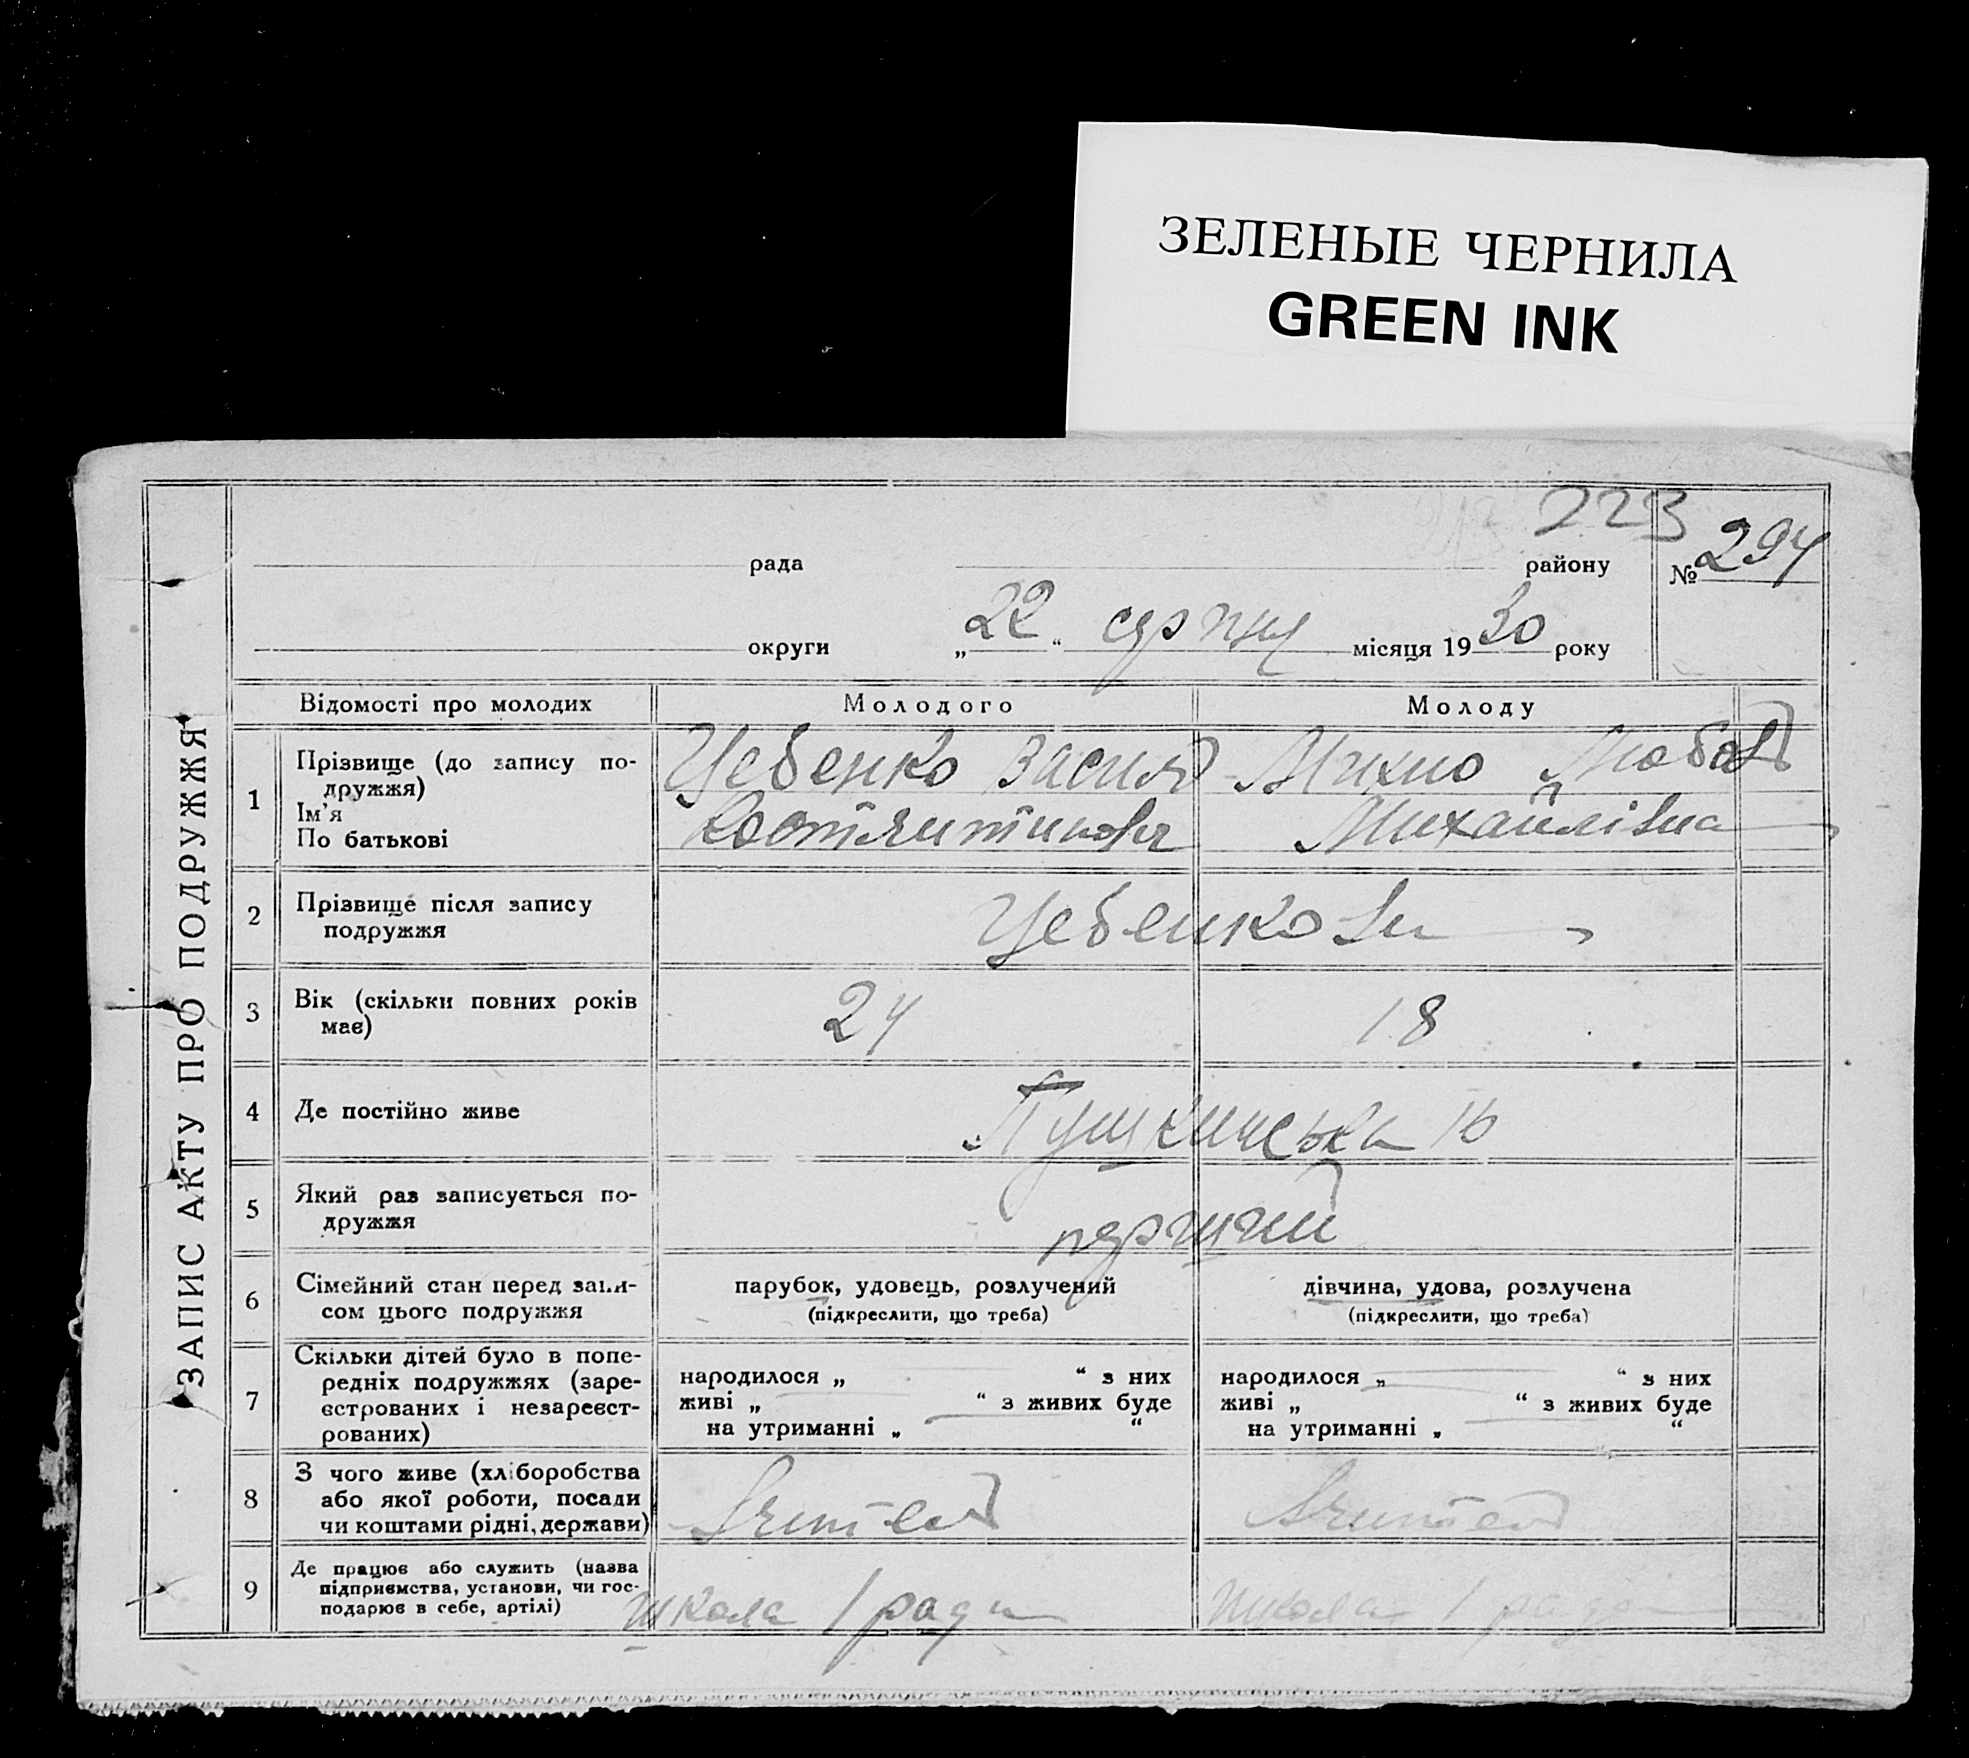 ЗЕЛЕНЫЕ ЧЕРНИЛА
GREEN INK
223
рада району № 294
округи „22“ серпня місяця 1930 року
ЗАПИС АКТУ ПРО ПОДРУЖЖЯ
Відомості про молодих Молодого Молоду
1
Прізвище (до запису по-
дружжя)
Ім'я
По батькові
Цебенко Василь
Костянтинович
Михно Любов
Михайлівна
2
Прізвище після запису
подружжя
Цебенкови
3
Вік (скільки повних років
має)
24
18
4
Де постійно живе
Пушкинська 16
5
Який раз записується по-
дружжя
перший
6
Сімейний стан перед запи-
сом цього подружжя
парубок, удовець, розлучений
(підкреслити, що треба)
дівчина, удова, розлучена
(підкреслити, що треба)
7
Скільки дітей було в попе-
редніх подружжях (заре-
єстрованих і незареєст-
рованих)
народилося „ “ з них
живі „ “ з живих буде
на утриманні „ “
народилося „ “ з них
живі „ “ з живих буде
на утриманні „ “
8
З чого живе (хліборобства
або якої роботи, посади
чи коштами рідні, держави)
9
Де працює або служить (назва
підприємства, установи, чи гос-
подарює в себе, артілі)
школа
школа